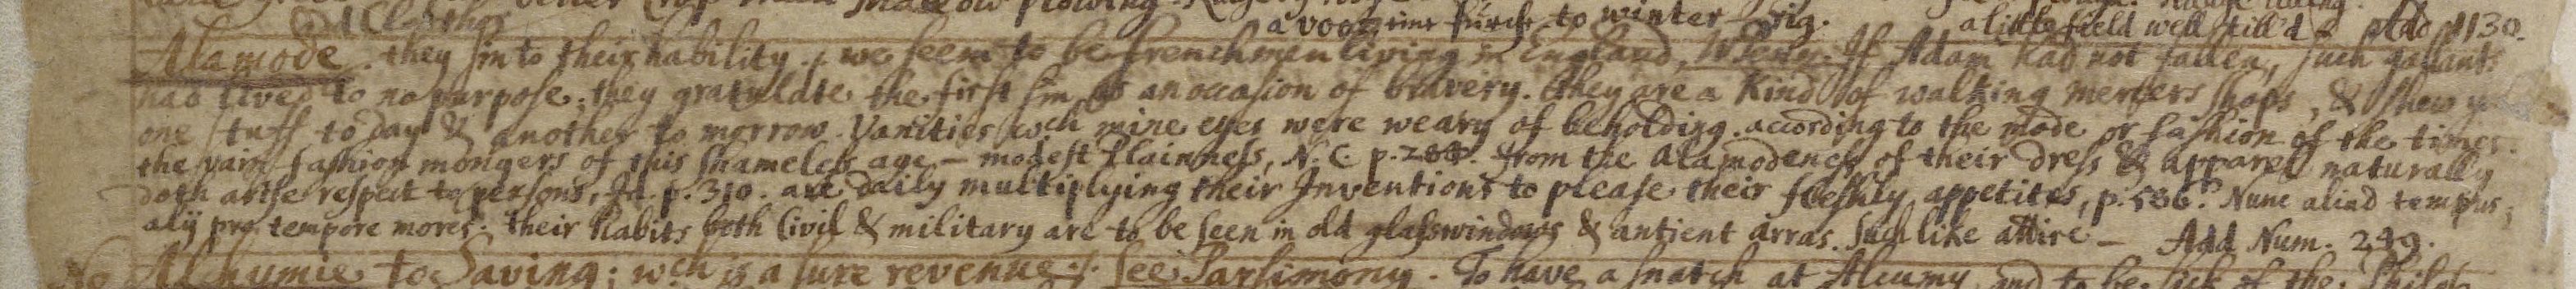 to winter rig. a little field well till'd Add 1130.
Alamode. they sin to their hability. we seem to be frenchmen living in England, If Adam had not fallen, such gallants
had lived to no purpose. they gratulate the first sin as an occasion of bravery. they are a kind of walking mercers shops, & shew
one stuff to day & another to morrow. Vanities wch mine eyes were weary of beholding. according to the mode or fashion of the times.
the vain fashion mongers of this shameless age, — modest plainness, N. C. p. from the Alamodeness of their dress & apparel naturally
doth arise respect to persons, Id. p. 310. are daily multiplying their Inventions to please their fleshly appetites, p. 586. Nunc aliud tempus,
alij pro tempore mores. their habits both Civil & military are to be seen in old glasswindows & antient arras. such like attire — Add Num. 249.
No Alchymie to Saving; wch is a sure revenue. see Parsimony. To have a snatch at Alcumy, and to be sick of the